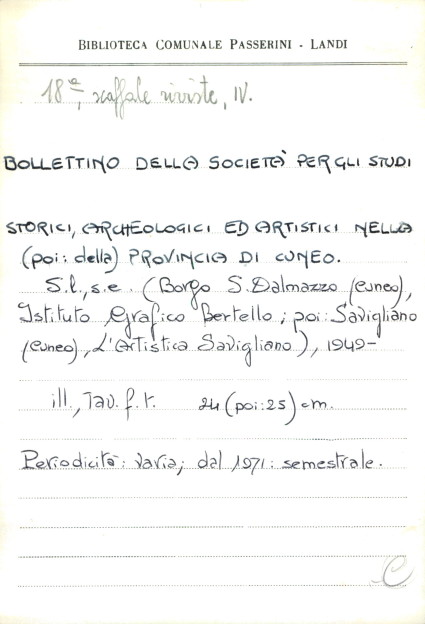 BIBLIOTECA COMUNALE PASSERINI - LANDI
18ª, scaffale riviste, IV.
BOLLETTINO DELLA SOCIETA' PER GLI STUDI
STORICI, ARCHEOLOGICI ED ARTISTICI NELLA
(poi: della) PROVINCIA DI CUNEO.
S.l., s.e. (Borgo S. Dalmazzo (Cuneo),
Istituto Grafico Bertello; poi: Savigliano
(Cuneo), L'Artistica Savigliano), 1949-
ill., Tav. f.t. 24 (poi: 25) cm.
Periodicità: varia; dal 1971: semestrale.
C